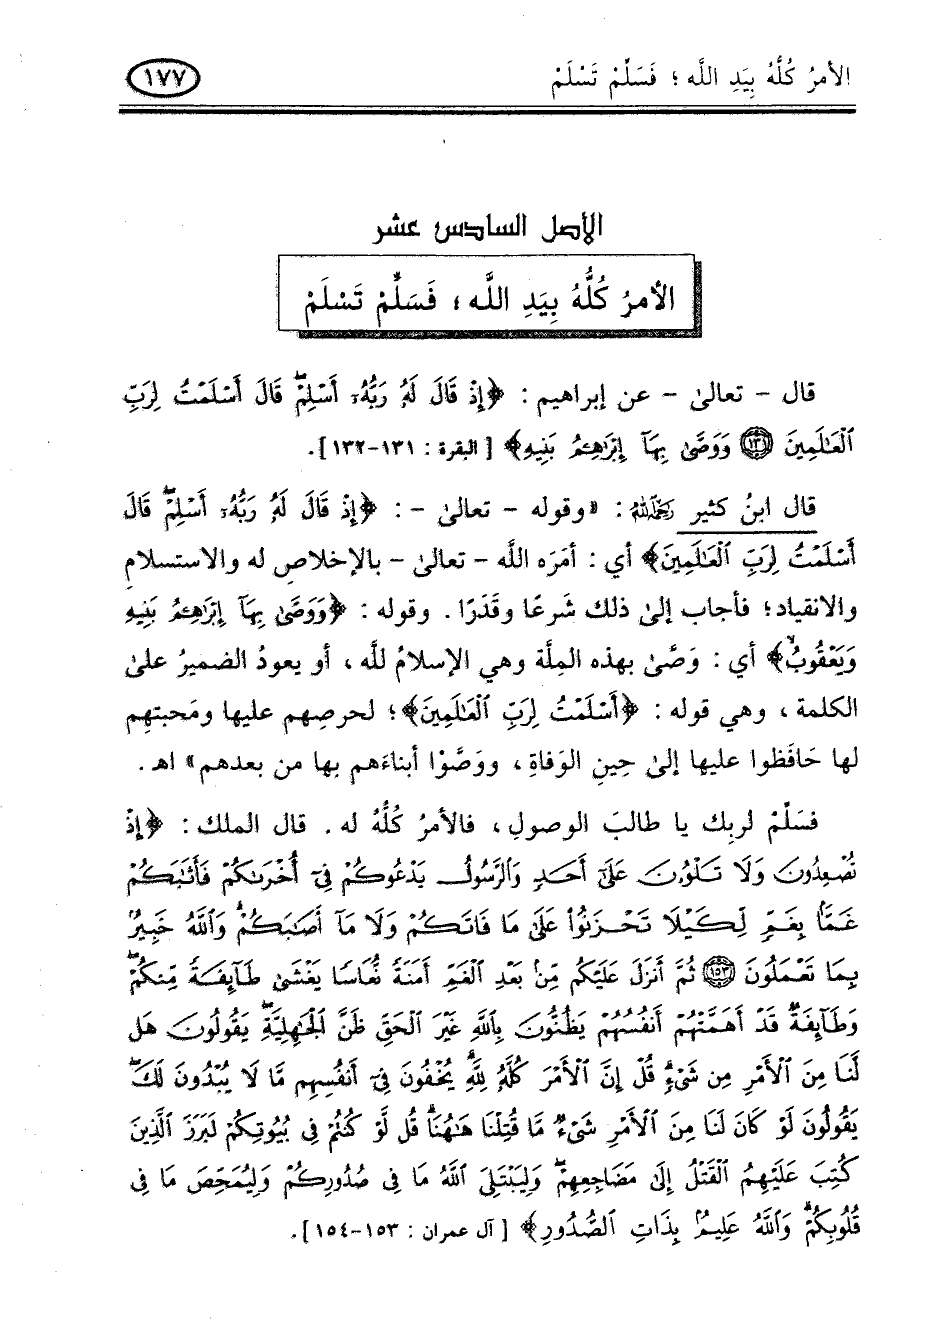 الأمرُ كُلُّهُ بِيَدِ اللَّه ؛ فَسَلِّمْ تَسْلَمْ
١٧٧
الأصل السادس عشر
الأمرُ كُلُّهُ بِيَدِ اللَّه ؛ فَسَلِّمْ تَسْلَمْ
قال - تعالىٰ - عن إبراهيم : ﴿إِذْ قَالَ لَهُۥ رَبُّهُۥٓ أَسْلِمْۖ قَالَ أَسْلَمْتُ لِرَبِّ
ٱلْعَٰلَمِينَ ١٣١ وَوَصَّىٰ بِهَآ إِبْرَٰهِـۧمُ بَنِيهِ﴾ [البقرة : ١٣١-١٣٢].
قال ابنُ كثير رَحِمَهُ اللَّهُ : «وقوله - تعالىٰ - : ﴿إِذْ قَالَ لَهُۥ رَبُّهُۥٓ أَسْلِمْۖ قَالَ
أَسْلَمْتُ لِرَبِّ ٱلْعَٰلَمِينَ﴾ أي : أمَرَه اللَّه - تعالىٰ - بالإخلاصِ له والاستسلامِ
والانقياد؛ فأجاب إلىٰ ذلك شَرعًا وقَدَرًا . وقوله : ﴿وَوَصَّىٰ بِهَآ إِبْرَٰهِـۧمُ بَنِيهِ
وَيَعْقُوبُ﴾ أي : وَصَّىٰ بهذه المِلَّة وهي الإسلامُ للَّه ، أو يعودُ الضميرُ علىٰ
الكلمة ، وهي قوله : ﴿أَسْلَمْتُ لِرَبِّ ٱلْعَٰلَمِينَ﴾؛ لحرصِهم عليها ومَحبتهِم
لها حَافَظوا عليها إلىٰ حِينِ الوَفاةِ ، ووَصَّوْا أبناءَهم بها من بعدهم» اهـ .
فسَلِّمْ لربك يا طالبَ الوصولِ ، فالأمرُ كُلُّهُ له . قال الملك : ﴿إِذْ
تُصْعِدُونَ وَلَا تَلْوُۥنَ عَلَىٰٓ أَحَدٍ وَٱلرَّسُولُ يَدْعُوكُمْ فِىٓ أُخْرَىٰكُمْ فَأَثَٰبَكُمْ
غَمًّۢا بِغَمٍّ لِّكَيْلَا تَحْزَنُوا۟ عَلَىٰ مَا فَاتَكُمْ وَلَا مَآ أَصَٰبَكُمْۗ وَٱللَّهُ خَبِيرٌۢ
بِمَا تَعْمَلُونَ ١٥٣ ثُمَّ أَنزَلَ عَلَيْكُم مِّنۢ بَعْدِ ٱلْغَمِّ أَمَنَةً نُّعَاسًا يَغْشَىٰ طَآئِفَةً مِّنكُمْۖ
وَطَآئِفَةٌ قَدْ أَهَمَّتْهُمْ أَنفُسُهُمْ يَظُنُّونَ بِٱللَّهِ غَيْرَ ٱلْحَقِّ ظَنَّ ٱلْجَٰهِلِيَّةِۖ يَقُولُونَ هَل
لَّنَا مِنَ ٱلْأَمْرِ مِن شَىْءٍۗ قُلْ إِنَّ ٱلْأَمْرَ كُلَّهُۥ لِلَّهِۗ يُخْفُونَ فِىٓ أَنفُسِهِم مَّا لَا يُبْدُونَ لَكَۖ
يَقُولُونَ لَوْ كَانَ لَنَا مِنَ ٱلْأَمْرِ شَىْءٌ مَّا قُتِلْنَا هَٰهُنَاۗ قُل لَّوْ كُنتُمْ فِى بُيُوتِكُمْ لَبَرَزَ ٱلَّذِينَ
كُتِبَ عَلَيْهِمُ ٱلْقَتْلُ إِلَىٰ مَضَاجِعِهِمْۖ وَلِيَبْتَلِىَ ٱللَّهُ مَا فِى صُدُورِكُمْ وَلِيُمَحِّصَ مَا فِى
قُلُوبِكُمْۗ وَٱللَّهُ عَلِيمٌۢ بِذَاتِ ٱلصُّدُورِ﴾ [آل عمران : ١٥٣-١٥٤].